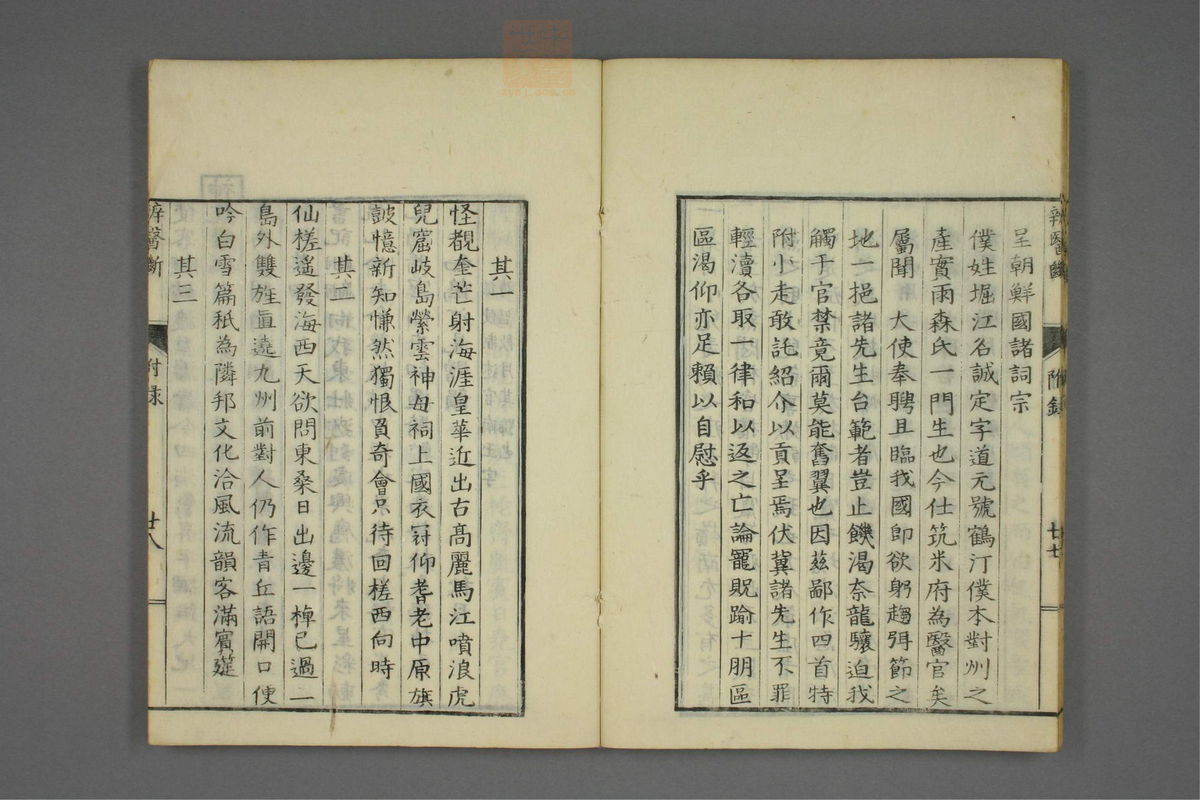 呈朝鮮國諸詞宗
僕姓堀江名誠定字道元號鶴汀僕本對州之
產實雨森氏一門生也今仕筑米府為醫官矣
屬聞 大使奉聘且臨我國即欲躬趨弭節之
地一挹諸先生台範者豈止饑渴奈龍驤迫我
觸于官禁竟爾莫能奮翼也因茲鄙作四首特
附小走敢託紹介以貢呈焉伏冀諸先生不罪
輕瀆各取一律和以返之亡論寵貺踰十朋區
區渴仰亦足賴以自慰乎
辨醫斷
附錄
廿七
其一
怪覩奎芒射海涯皇華近出古高麗馬江噴浪虎
兒窟岐島縈雲神母祠上國衣冠仰耆老中原旗
鼓憶新知慊然獨恨負奇會只待回槎西向時
其二
仙槎遙發海西天欲問東桑日出邊一棹已過二
島外雙旌直遶九州前對人仍作青丘語開口便
吟白雪篇秖為隣邦文化洽風流韻客滿賓筵
其三
辨醫斷
附录
廿八